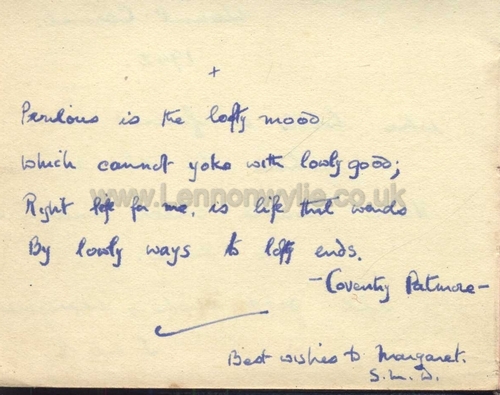 +
Perilous is the lofty mood
which cannot yoke with lowly good;
www.Lennonwylie.co.uk
Right life for me, is life that wends
By lowly ways to lofty ends.
-Coventry Patmore-
Best wishes to Margaret.
S.M.D.